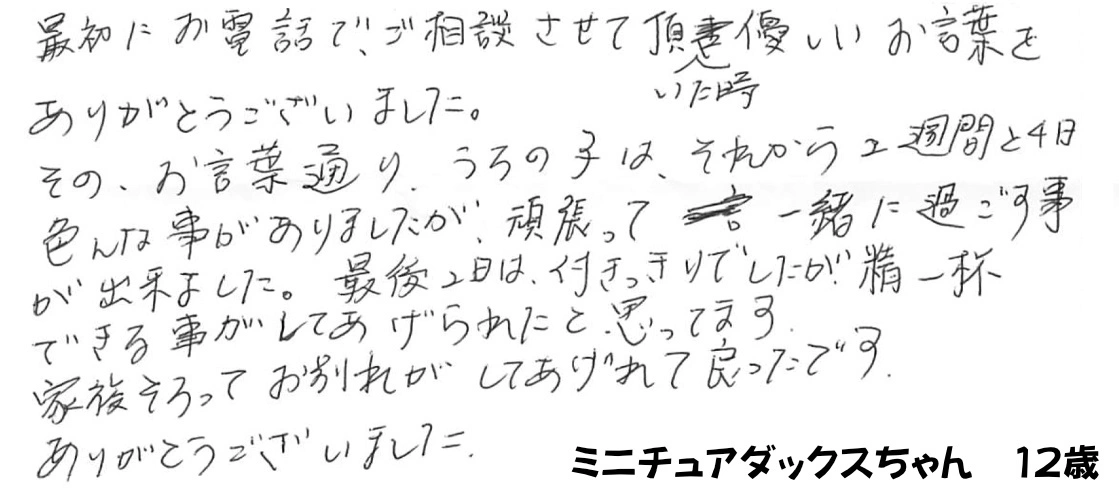 最初にお電話で、ご相談させて頂いた時優しいお言葉を
ありがとうございました。
その、お言葉通り、うちの子は、それから2週間と4日
色んな事がありましたが、頑張って 一緒に過ごす事
が出来ました。最後2日は、付きっきりでしたが精一杯
できる事がしてあげられたと思ってます。
家後そろってお別れが してあげれて良ったです。
ありがとうございました。
ミニチュアダックスちゃん 12歳